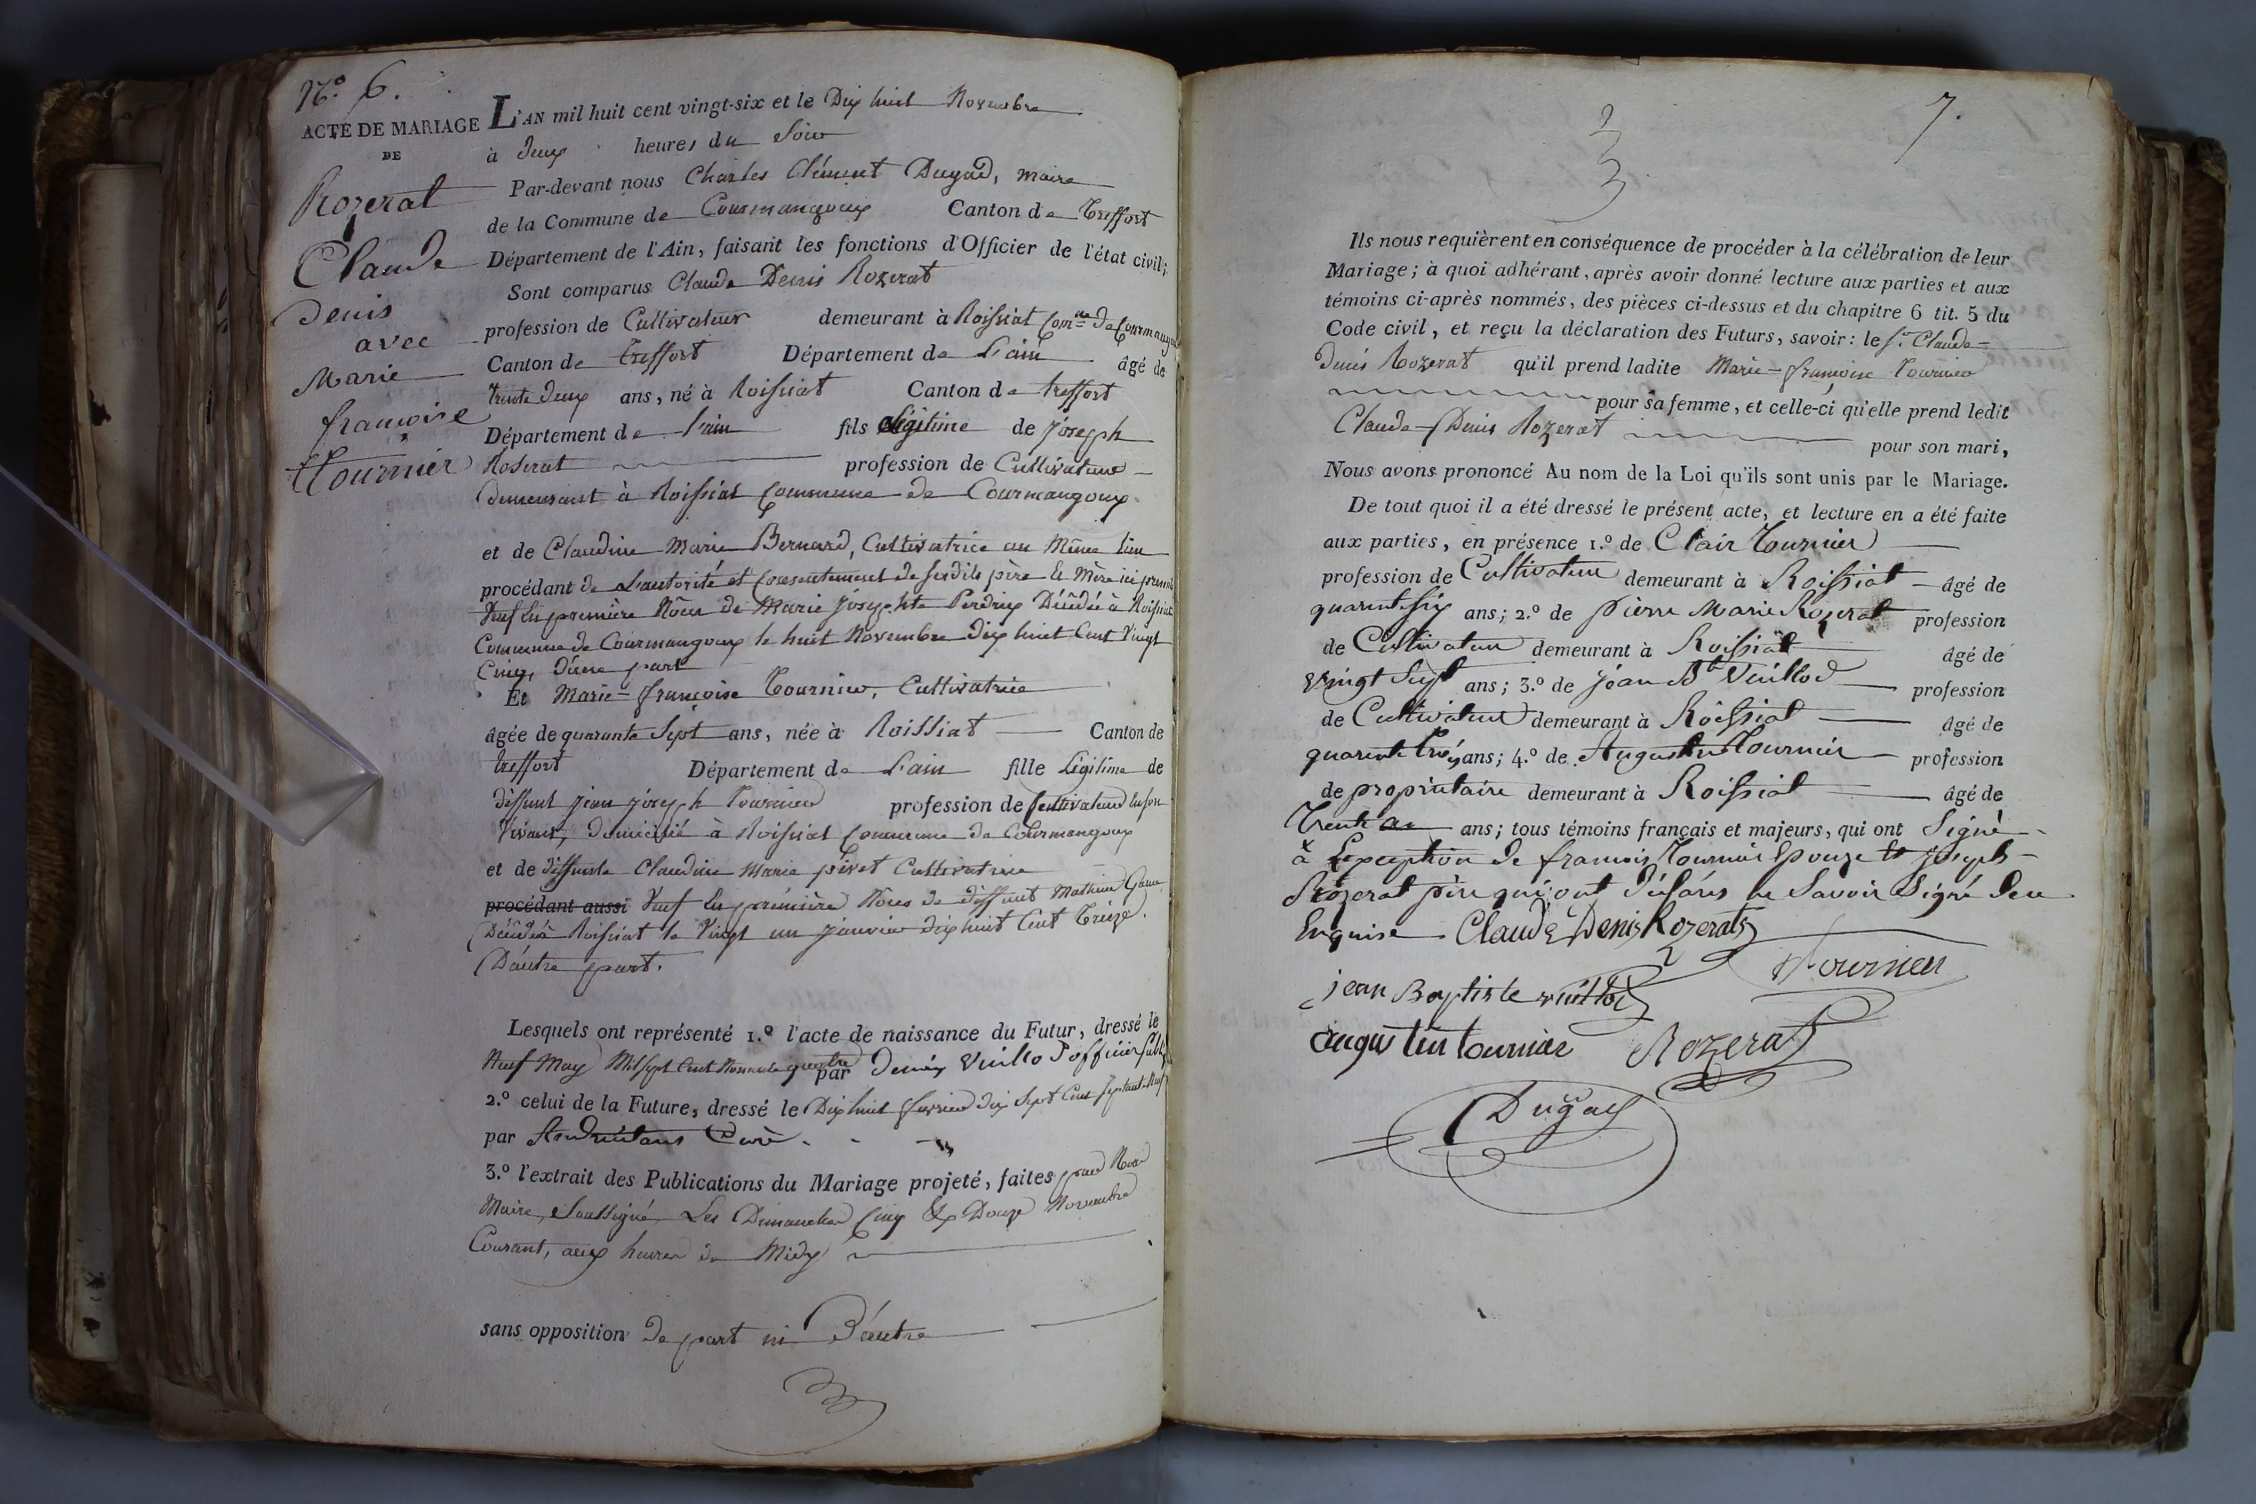 N.o 6.
ACTE DE MARIAGE
DE
Rozerat
Claude
Denis
avec
Marie
françoise
Tournier
L'AN mil huit cent vingt-six et le Dix huit Novembre
à deux heures du Soir
Par-devant nous Charles Clément Dugad, maire
de la Commune de Courmangoux Canton de Treffort
Département de l'Ain, faisant les fonctions d'Officier de l'état civil;
Sont comparus Claude Denis Rozerat
profession de Cultivateur demeurant à Roissiat Com.ne de Courmangoux
Canton de treffort Département de L'ain âgé de
trente deux ans, né à Roissiat Canton de treffort
Département de l'ain fils légitime de joseph
Roserat profession de Cultivateur
demeurant à Roissiat Commune de Courmangoux
et de Claudine Marie Bernard, Cultivatrice au Même lieu
procédant de L'autorité et Consentement de sesdits père Et Mère ici présents
Veuf En première Nôces de Marie josephte Perdrix Décédée à Roissiat
Commune de Courmangoux le huit Novembre dix huit Cent Vingt
Cinq, d'une part
Et Marie-françoise Tournier, Cultivatrice
âgée de quarante Sept ans, née à Roissiat Canton de
treffort Département de L'ain fille Légitime de
déffunt jean joseph Tournier profession de Cultivateur En son
Vivant, domicilié à Roissiat Commune de Courmangoux
et de déffunte Claudine Marie pivet Cultivatrice
procédant aussi Veuf En première Nôces de déffunt Mathieu
Décédé à Roissiat le Vingt un janvier dix huit Cent Treize.
D'autre part.
Lesquels ont représenté 1.o l'acte de naissance du Futur, dressé le
Neuf May Mil sept Cent Nonante quatre par Denis Vuillod officier public
2.o celui de la Future, dressé le Dix huit fevrier dix Sept Cent septante Neuf
par Curé.
3.o l'extrait des Publications du Mariage projeté, faites par Nous
Maire, Soussigné, Les Dimanches Cinq & Douze Novembre
Courant, aux heures de Midy
sans opposition de part ni D'autre
7.
Ils nous requièrent en conséquence de procéder à la célébration de leur
Mariage; à quoi adhérant, après avoir donné lecture aux parties et aux
témoins ci-après nommés, des pièces ci-dessus et du chapitre 6 tit. 5 du
Code civil, et reçu la déclaration des Futurs, savoir: le S.r Claude-
Denis Rozerat qu'il prend ladite Marie-françoise Tournier
pour sa femme, et celle-ci qu'elle prend ledit
Claude-Denis Rozerat pour son mari,
Nous avons prononcé Au nom de la Loi qu'ils sont unis par le Mariage.
De tout quoi il a été dressé le présent acte, et lecture en a été faite
aux parties, en présence 1.o de Clair Tournier
profession de Cultivateur demeurant à Roissiat âgé de
quarente six ans; 2.o de pierre Marie Rozerat profession
de Cultivateur demeurant à Roissiat âgé de
vingt sept ans; 3.o de jean Bte Vuillod profession
de Cultivateur demeurant à Roissiat âgé de
quarente trois ans; 4.o de Augustin Tournier profession
de propriétaire demeurant à Roissiat âgé de
Trente ans; tous témoins français et majeurs, qui ont Signé
à L'exception de francois Tournier Epouze et joseph
Rozerat père qui ont déclarés ne Savoir Signé de ce
Enquise Claude Denis Rozerat
Tournier
jean Baptiste vuillod
augustin tournier Rozerat
Dugad